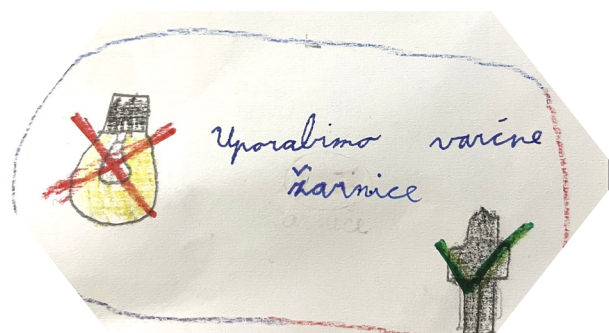 Uporabimo varčne
žarnice